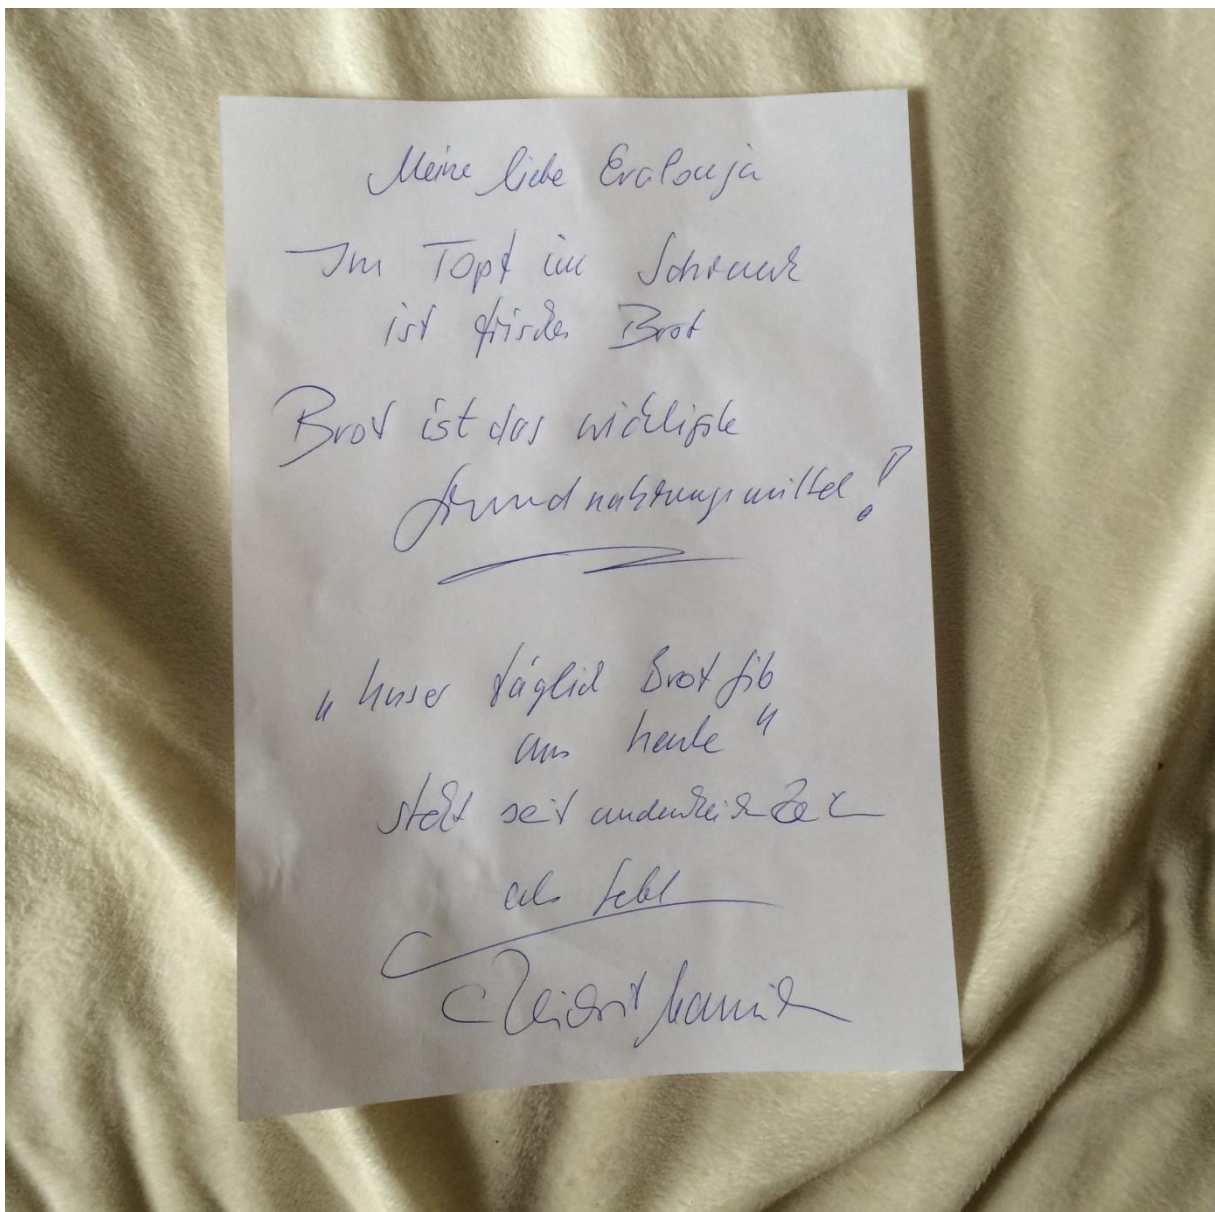 Meine liebe Evalouja
Im Topf im Schrank
ist frisches Brot
Brot ist das wichtigste
Grundnahrungsmittel!
"Unser täglich Brot gib
uns heute"
steht seit
als